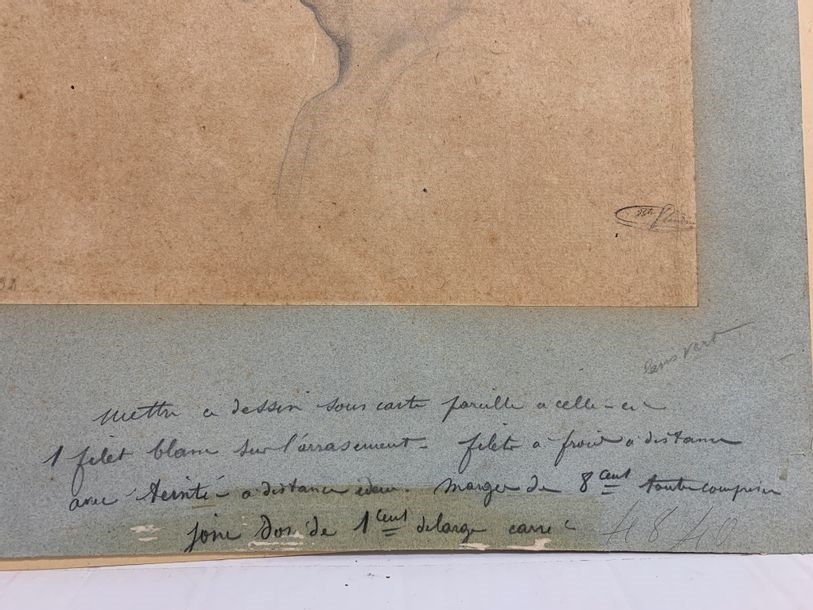 32
sans vert
mettre ce dessin sous carte pareille a celle-ci
1 filet blanc sur l'arrasement - filets a froid a distance
avec teinté - a distance idem. marges de 8 cent toute comprise
de 1 cent de large carré